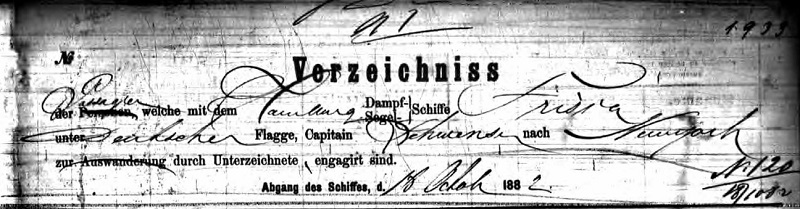 № 1
1933
№
Verzeichniss
der Personen, welche mit dem Hamburg Dampf- Segel- Schiffe Frisia
unter Deutscher Flagge, Capitain nach Newyork
zur Auswanderung durch Unterzeichnete engagirt sind.
№ 120
Abgang des Schiffes, d. 18 Octob 1882.
18/10 82